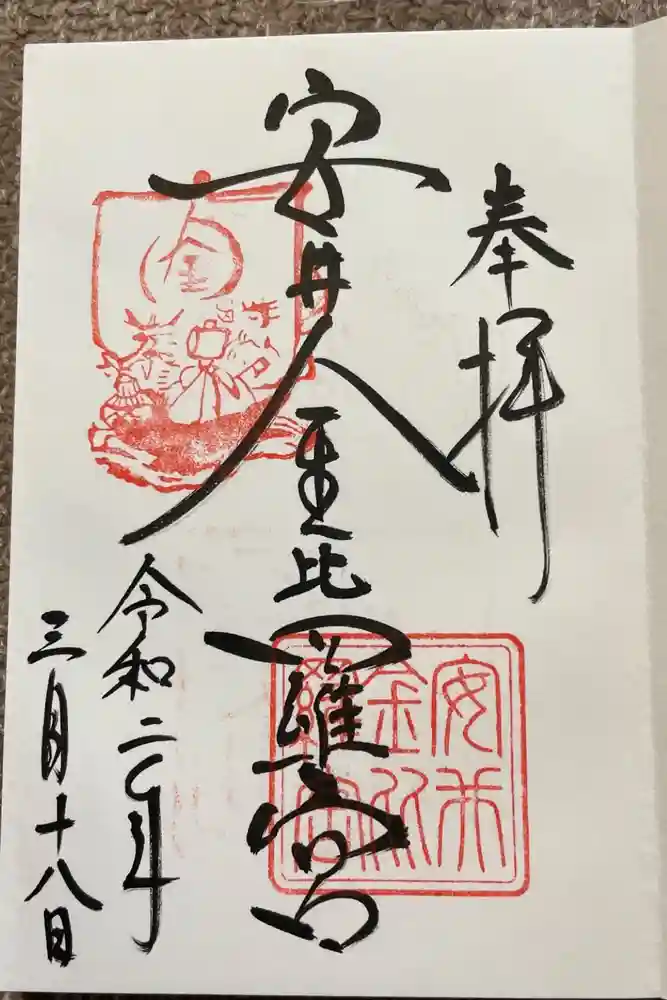 奉拝
安井金比羅宮
令和二年
三月十八日
金
安井
金比
羅宮